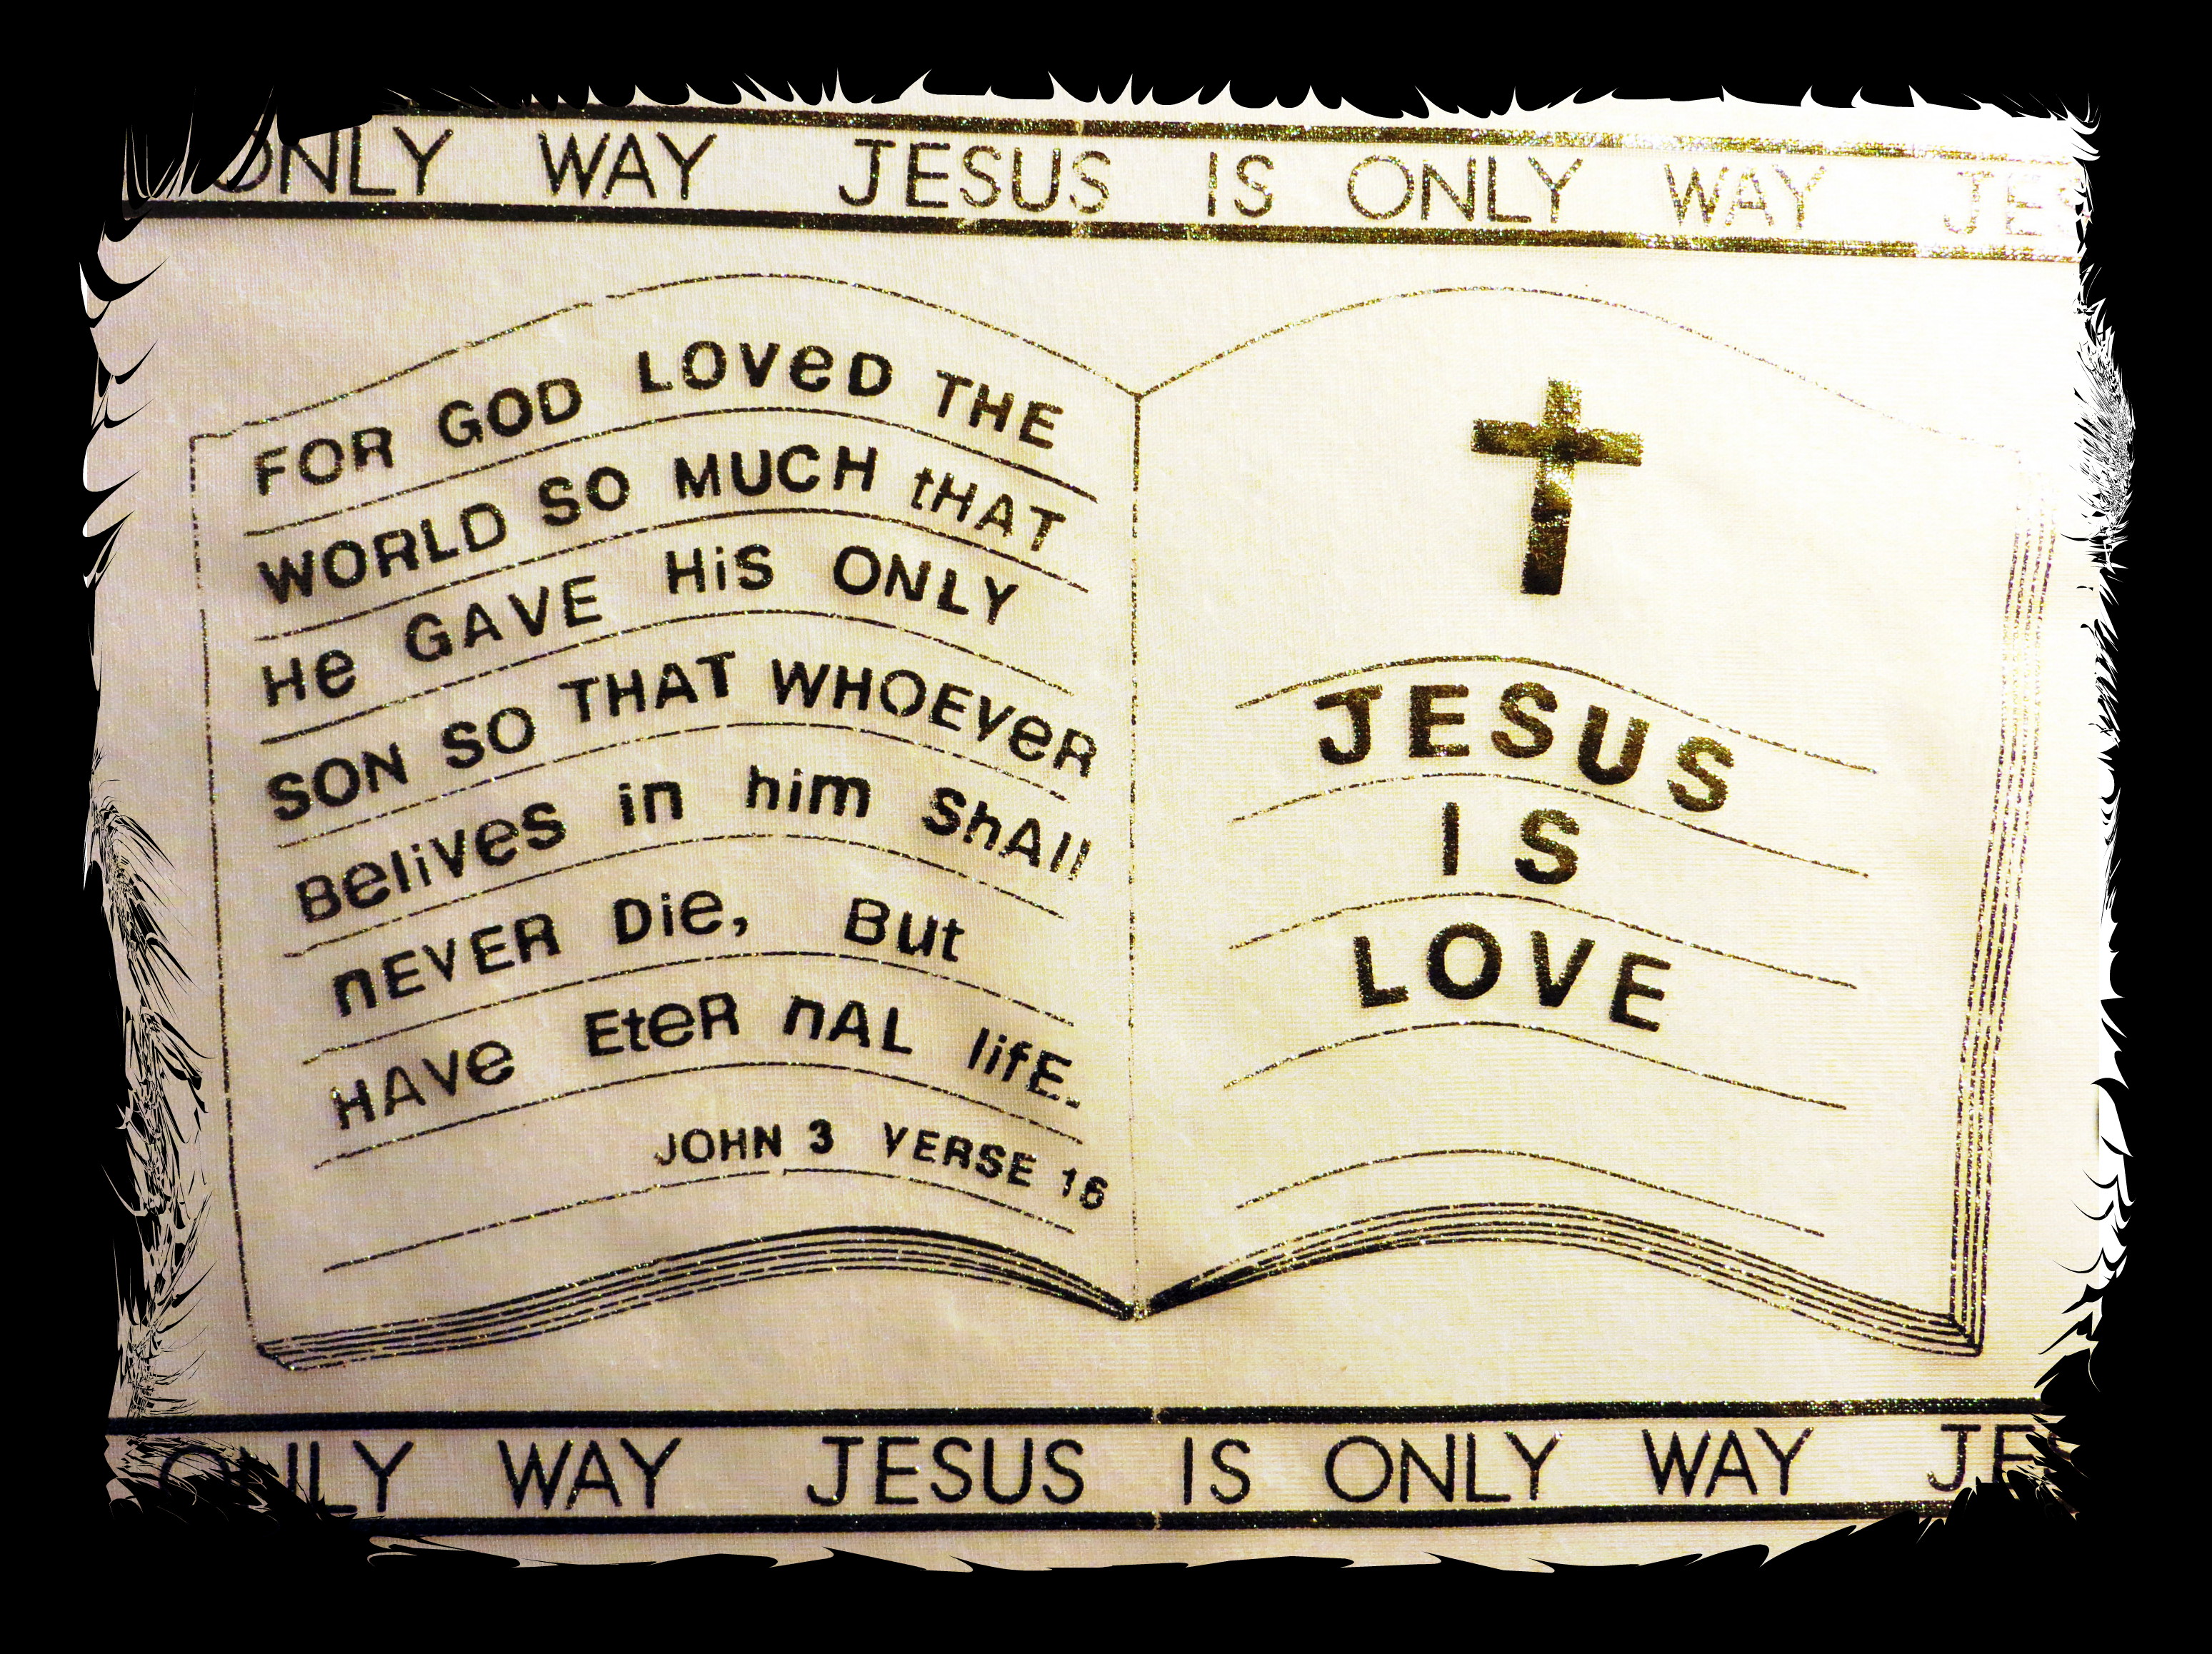 ONLY WAY JESUS IS ONLY WAY JES
FOR GOD LOVeD THE
WORLD SO MUCH tHAT
He GAVE HiS ONLY
SON SO THAT WHOEVeR
Belives in him ShAll
nEVER Die, But
HAVe EteR nAL lifE.
JOHN 3 VERSE 16
JESUS
IS
LOVE
ONLY WAY JESUS IS ONLY WAY JES